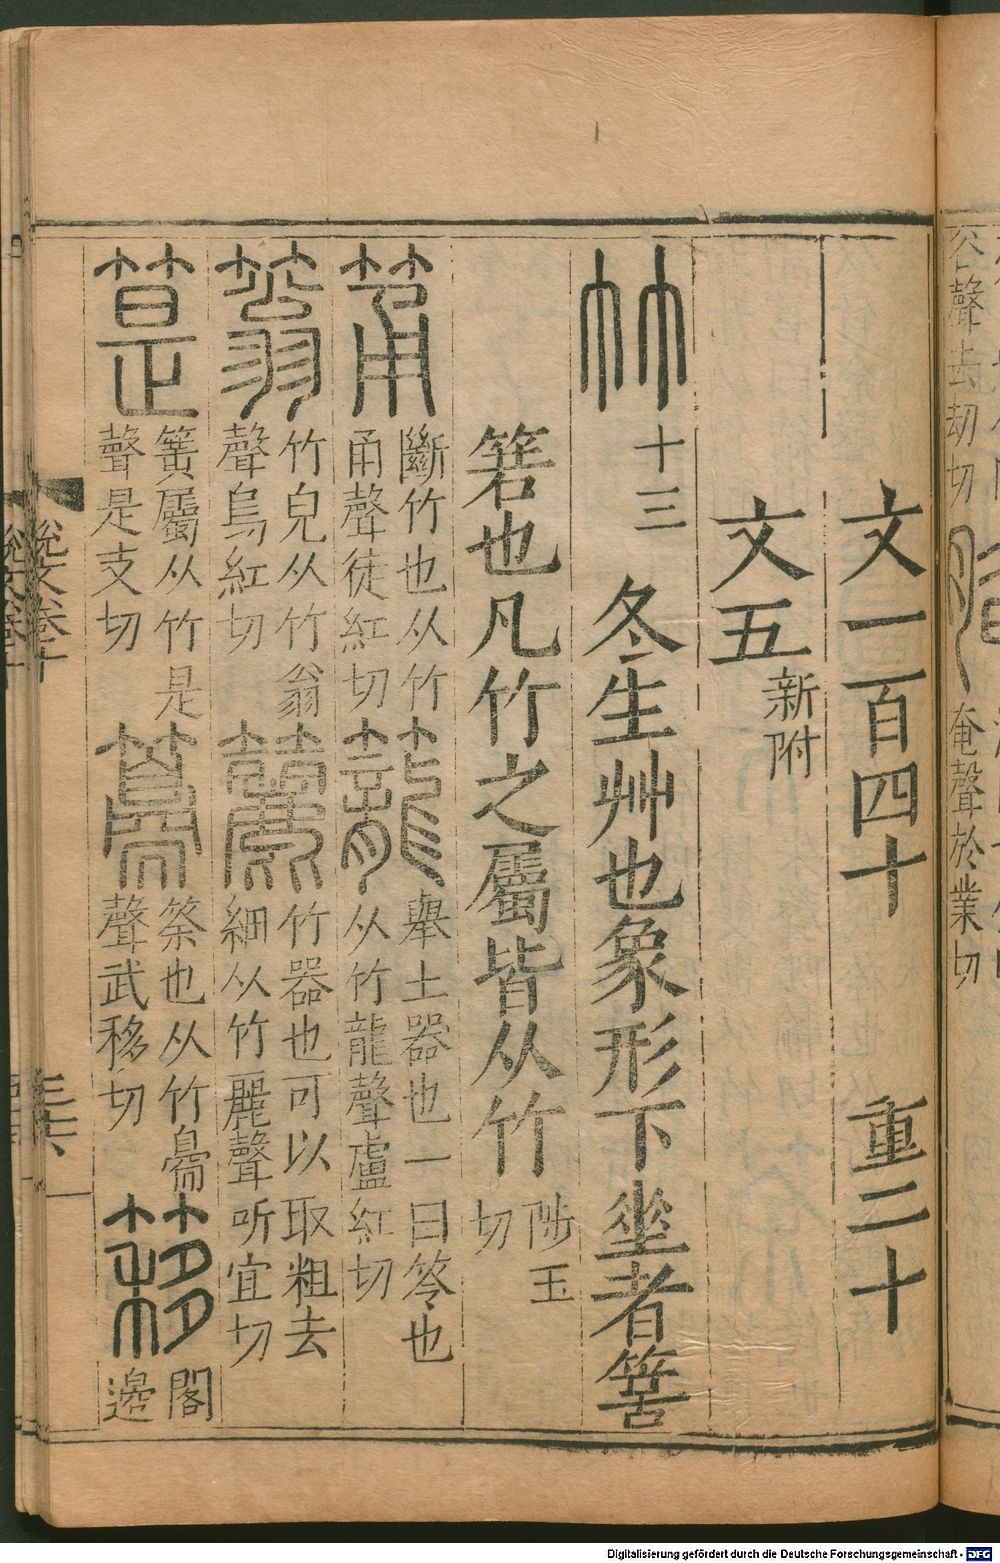 文一百四十 重二十
文五新附
竹十三 冬生艸也象形下𡋲者箁
箬也凡竹之屬皆从竹陟玉切
筩斷竹也从竹甬聲徒紅切籠舉土器也一曰笭也从竹龍聲盧紅切
䈵竹皃从竹翁聲烏紅切簏竹器也可以取粗去細从竹麗聲所宜切
䈕簧屬从竹是聲是支切𥴈筡也从竹臱聲武移切簃閣邊
說文卷十
三十六
公聲去劫切
奄聲於業切
Digitalisierung gefördert durch die Deutsche Forschungsgemeinschaft - DFG